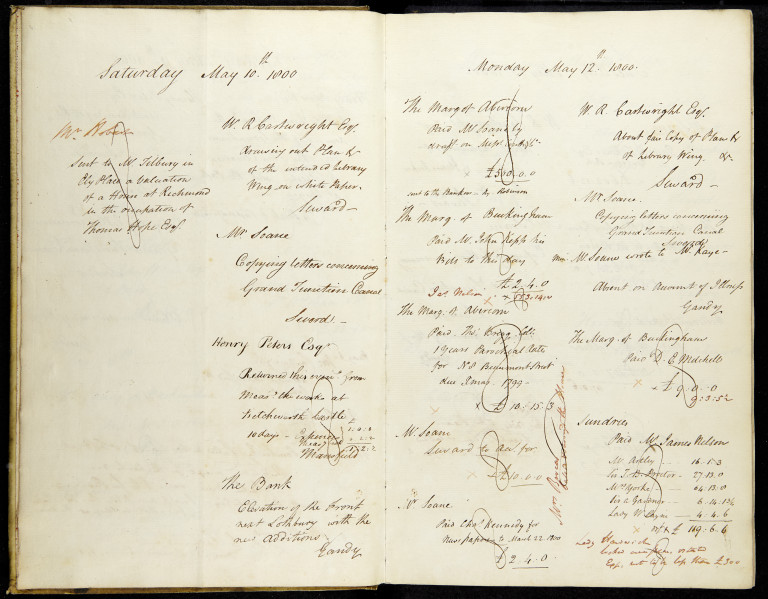 Saturday May 10th. 1800
Mr.
Sent to Mr. Tilbury in
Ely Place a valuation
of a House at Richmond
in the occupation of
Thomas Hope Esqr.
W. R. Cartwright Esqr.
drawing out Plan &
of the intended Library
Wing on white Paper.
Seward —
Mr Soane
Copying letters concerning
Grand Junction Canal
Seward —
Henry Peters Esqr
Returned this evening from
Measg. the works at
Betchworth Castle
10 days — Expences
Mansfield
The Bank
Elevation of the Front
next Lothbury with the
new additions.
Gandy
Monday May 12th. 1800
The Marq. of Abercorn
Paid Mr.
draft on Messrs.
£500.0.0
sent to the Bankers by Robinson
The Marq. of Buckingham
Paid Mr. John Kepp his
Bill to this day
£2.4.0
Jas. Nelson
The Marq. of Abercorn
Paid Thos. Bragg
1 years Parochial Rate
for No 8 Beaumont Street
due 1799
£10.15.3
Mr. Soane
Seward to acct. for
£10.0.0
Mr Soane
Paid Chas. Kennedy for
News papers to March 22. 1800
£2.4.0
W. R. Cartwright Esqr.
About fair Copy of Plan &
of Library Wing &c.
Seward —
Mr Soane.
Copying letters concerning
Grand Junction Canal
Seward
Mr. Soane wrote to Mr. Kaye —
Absent on account of Illness
Gandy
The Marq. of Buckingham
Paid D. E. Mitchell
£9.0.0
Sundries
Paid Mr. James Nelson
Mr. Astley — 16.1.3
27.13.0
Mr. Yorke — 64.13.0
Lady W. Wynn — 4.4.6
£119.6.6
Lady
£300